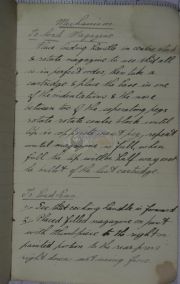 Mechanism
To Load Magazine
Place loading handle in centre block
& rotate magazine to see that all
is in perfect order, then take a
cartridge & place the base in one
of the indentations & the nose
between two of the separating pegs
rotate centre block until
lip is opposite next peg, repeat
until magazine is full, when
full the lip will be half way over
the bullet of the last cartridge.
To Load Gun
1 See that cocking handle is forward
2 Place filled magazine on post
with thumbpiece to the right on
pointed portion to the rear press
right down and using force